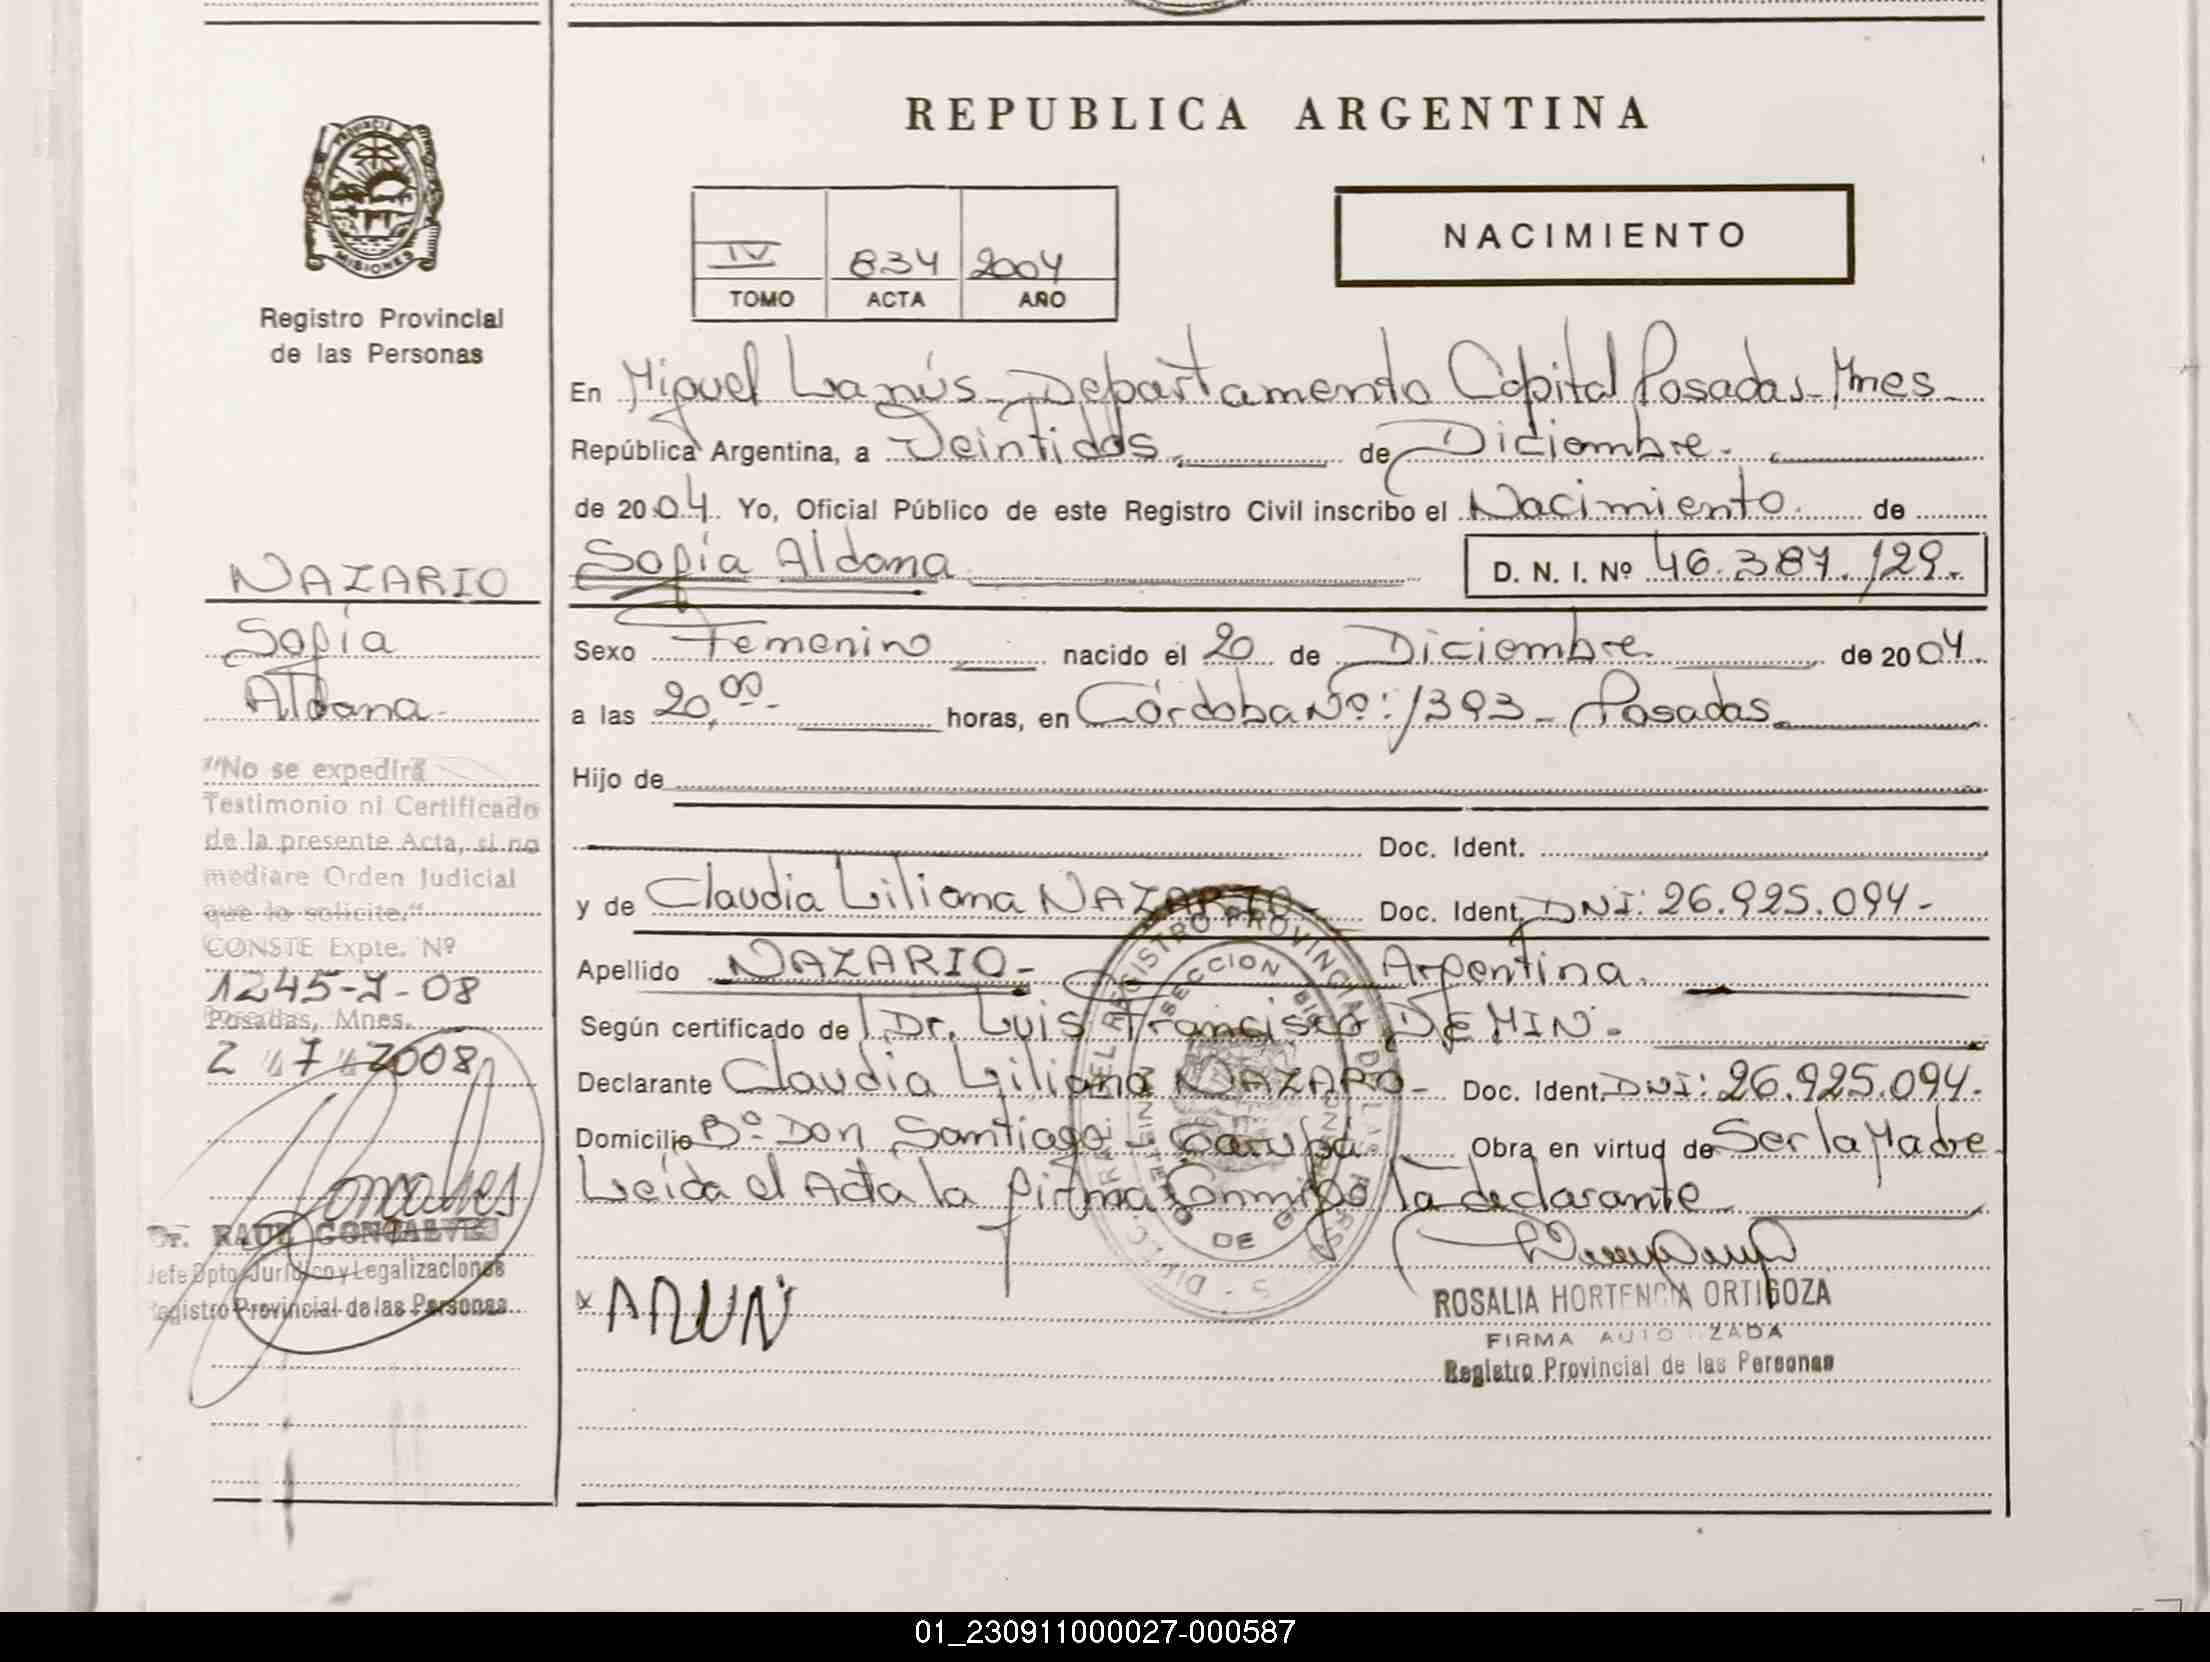 REPUBLICA ARGENTINA
PROVINCIA DE
MISIONES
Registro Provincial
de las Personas
IV 834 2004
TOMO ACTA AÑO
NACIMIENTO
En Miguel Lanús - Departamento Capital Posadas - Mnes -
República Argentina, a Veintidós de Diciembre.
de 2004. Yo, Oficial Público de este Registro Civil inscribo el Nacimiento de
Sofía Aldana D. N. I. Nº 46.387.129.
NAZARIO
Sofía
Aldana
Sexo Femenino nacido el 20 de Diciembre de 2004.
a las 20,00 horas, en Córdoba Nº: 1393 - Posadas.
Hijo de
Doc. Ident.
y de Claudia Liliana NAZARIO - Doc. Ident. DNI: 26.925.094 -
Apellido NAZARIO - Argentina.
Según certificado de Dr. Luis Francisco DEMIN -
Declarante Claudia Liliana NAZARO - Doc. Ident. DNI: 26.925.094 -
Domicilio Bº Don Santiago - Garupá. Obra en virtud de Ser la Madre
Leída el Acta la firma Conmigo la declarante
"No se expedirá
Testimonio ni Certificado
de la presente Acta, si no
mediare Orden Judicial
que lo solicite."
CONSTE Expte. Nº
1245-J-08
Posadas, Mnes.
2 7 2008
Dr. RAUL GONCALVES
Jefe Dpto. Jurídico y Legalizaciones
Registro Provincial de las Personas
ROSALIA HORTENCIA ORTIGOZA
FIRMA AUTORIZADA
Registro Provincial de las Personas
01_230911000027-000587